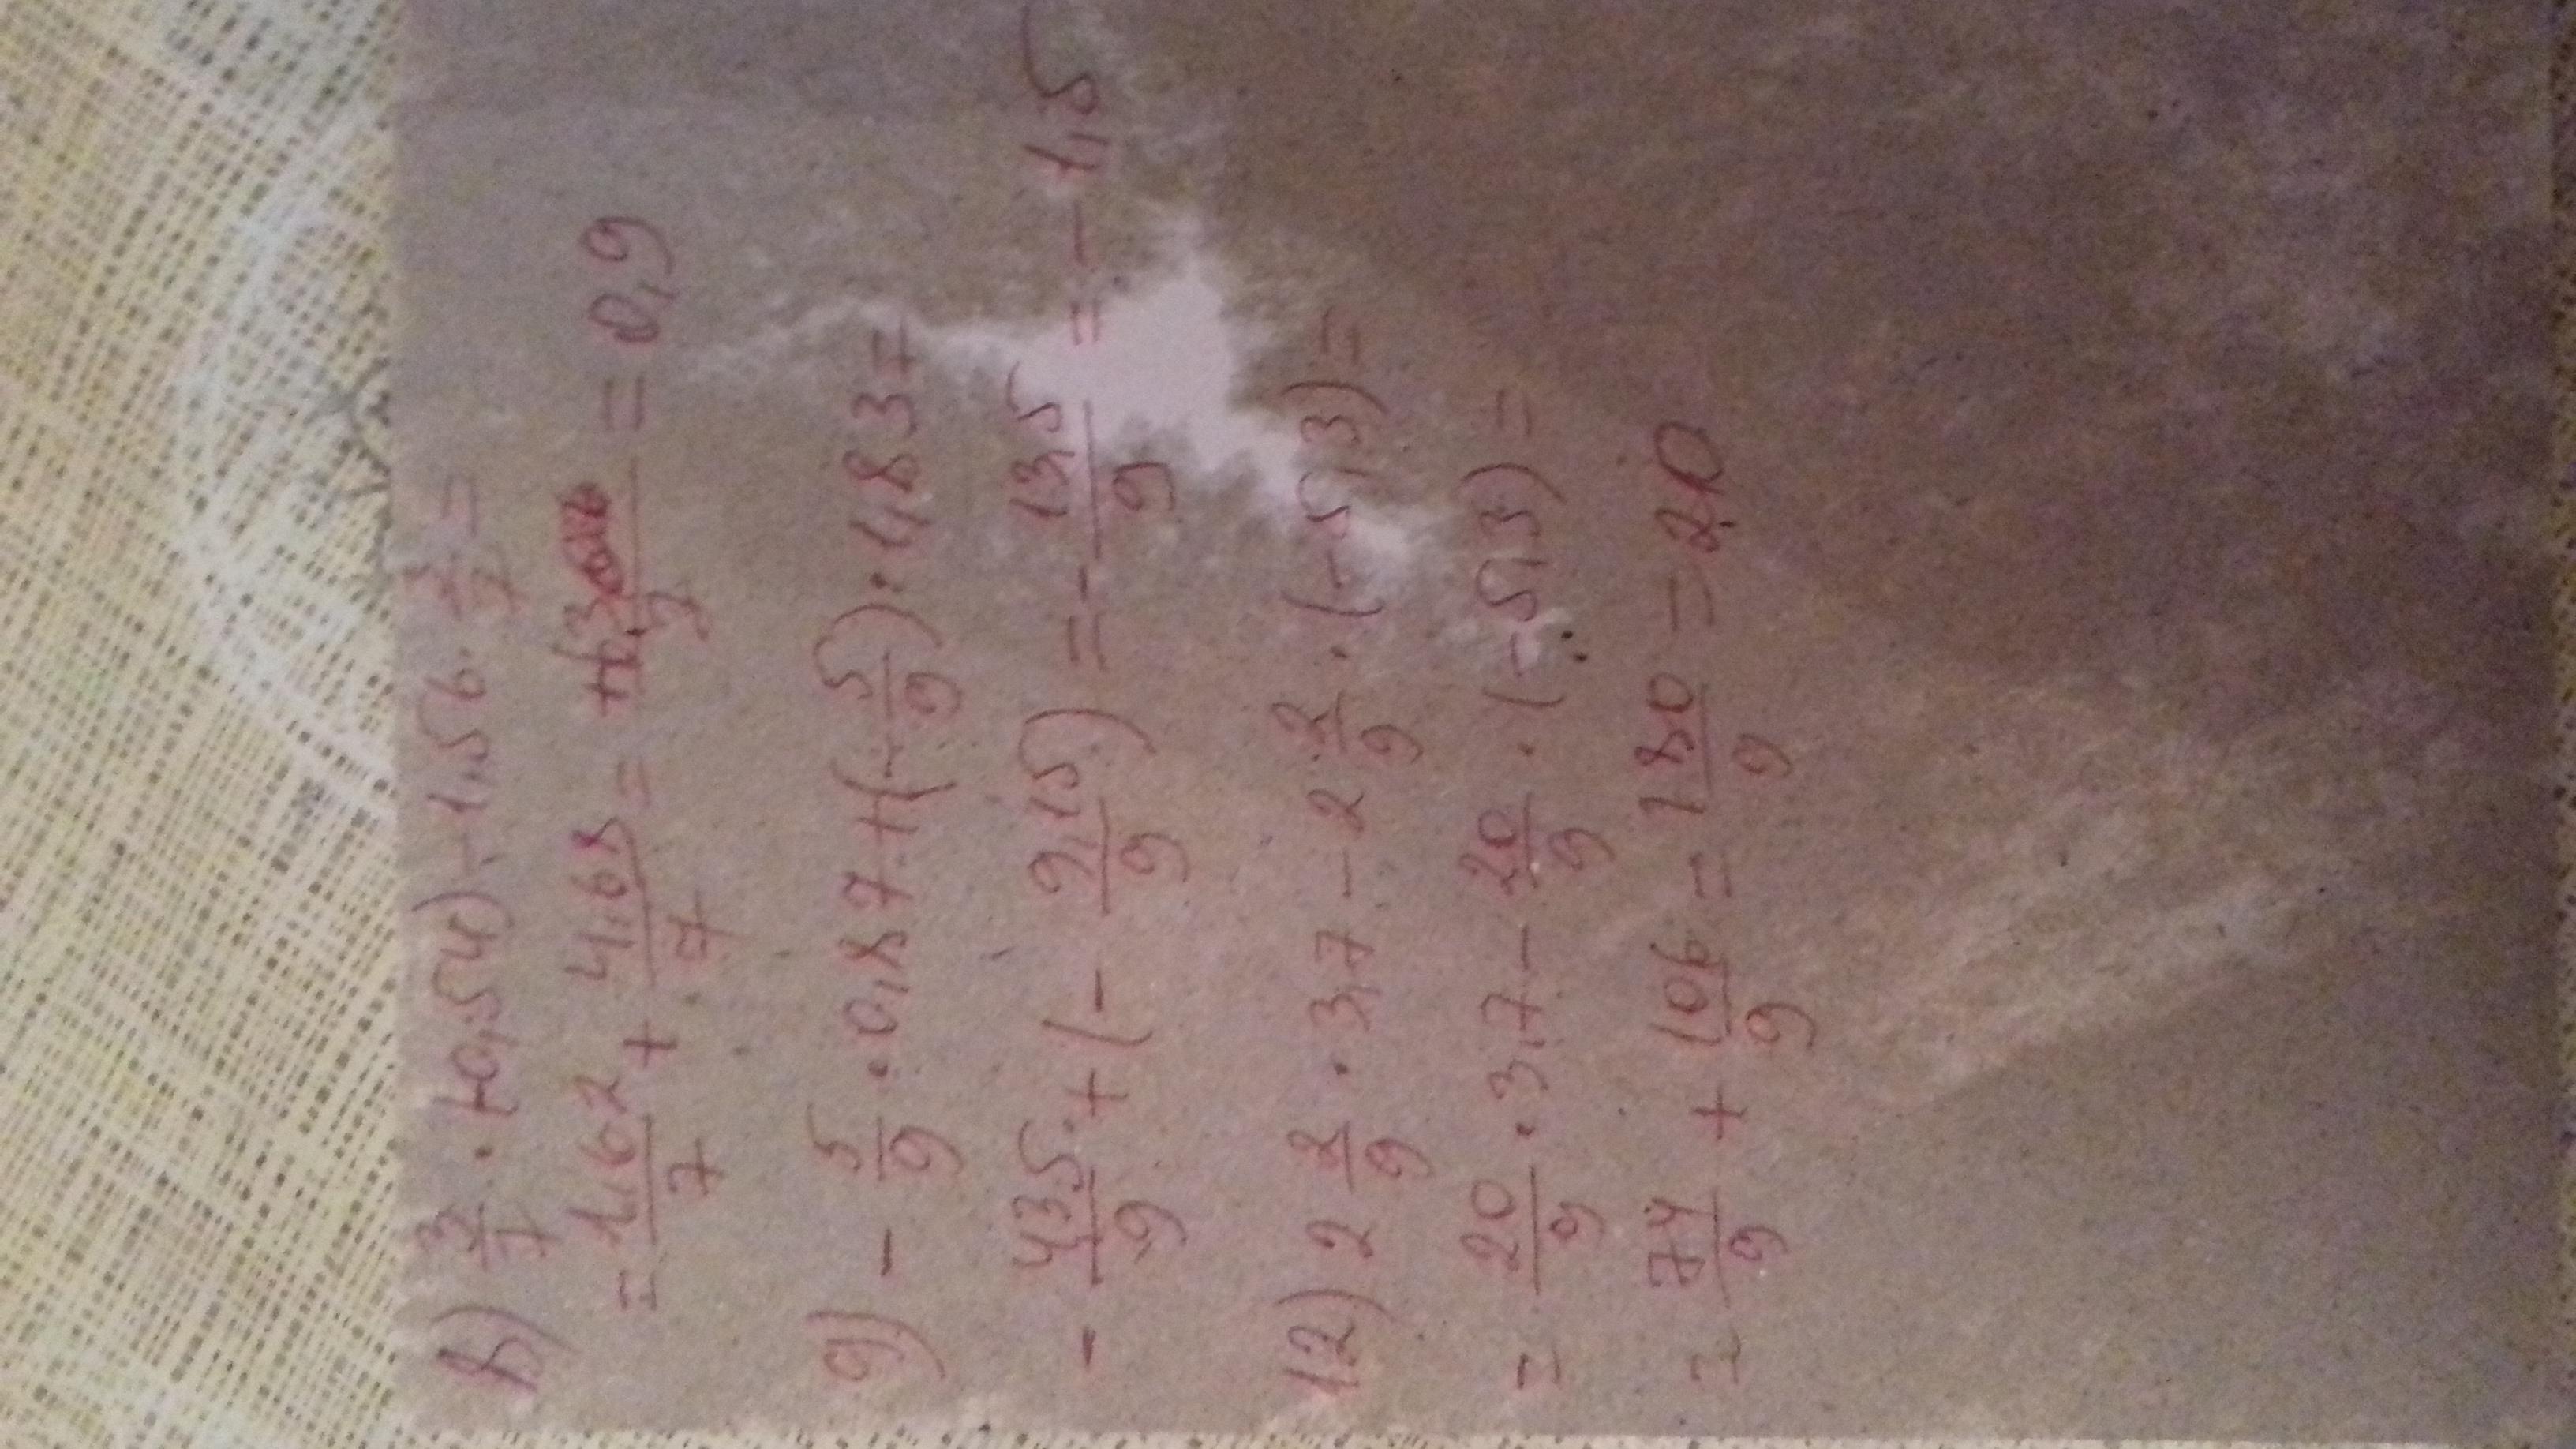 8) 3/7 · (-0,54) - 1,56 · 3/7 =
= 1,62/7 + 4,68/7 = = 0,9
9) - 5/9 · 0,87 + (- 5/9) · 1,83 =
- 4,35/9 + (- 9,15/9) = - 13,5/9 = - 1,5
12) 2 2/9 · 3,7 - 2 2/9 · (-5,3) =
= 20/9 · 3,7 - 20/9 · (-5,3) =
= 74/9 + 106/9 = 180/9 = 20